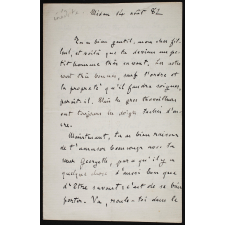 Médan six août 82
Tu es bien gentil, mon cher fil-
leul, et voilà que tu deviens un pe-
tit homme très savant. Tes notes
sont très bonnes, sauf l'ordre et
la propreté qu'il faudra soigner,
paraît-il. Mais les gros travailleurs
ont toujours les doigts tachés d'en-
cre.
Maintenant, tu as bien raison
de t'amuser beaucoup avec ta
sœur Georgette, parce qu'il y a
quelque chose d'aussi bon que
d'être savant : c'est de se bien
porter. Va, roule-toi dans le